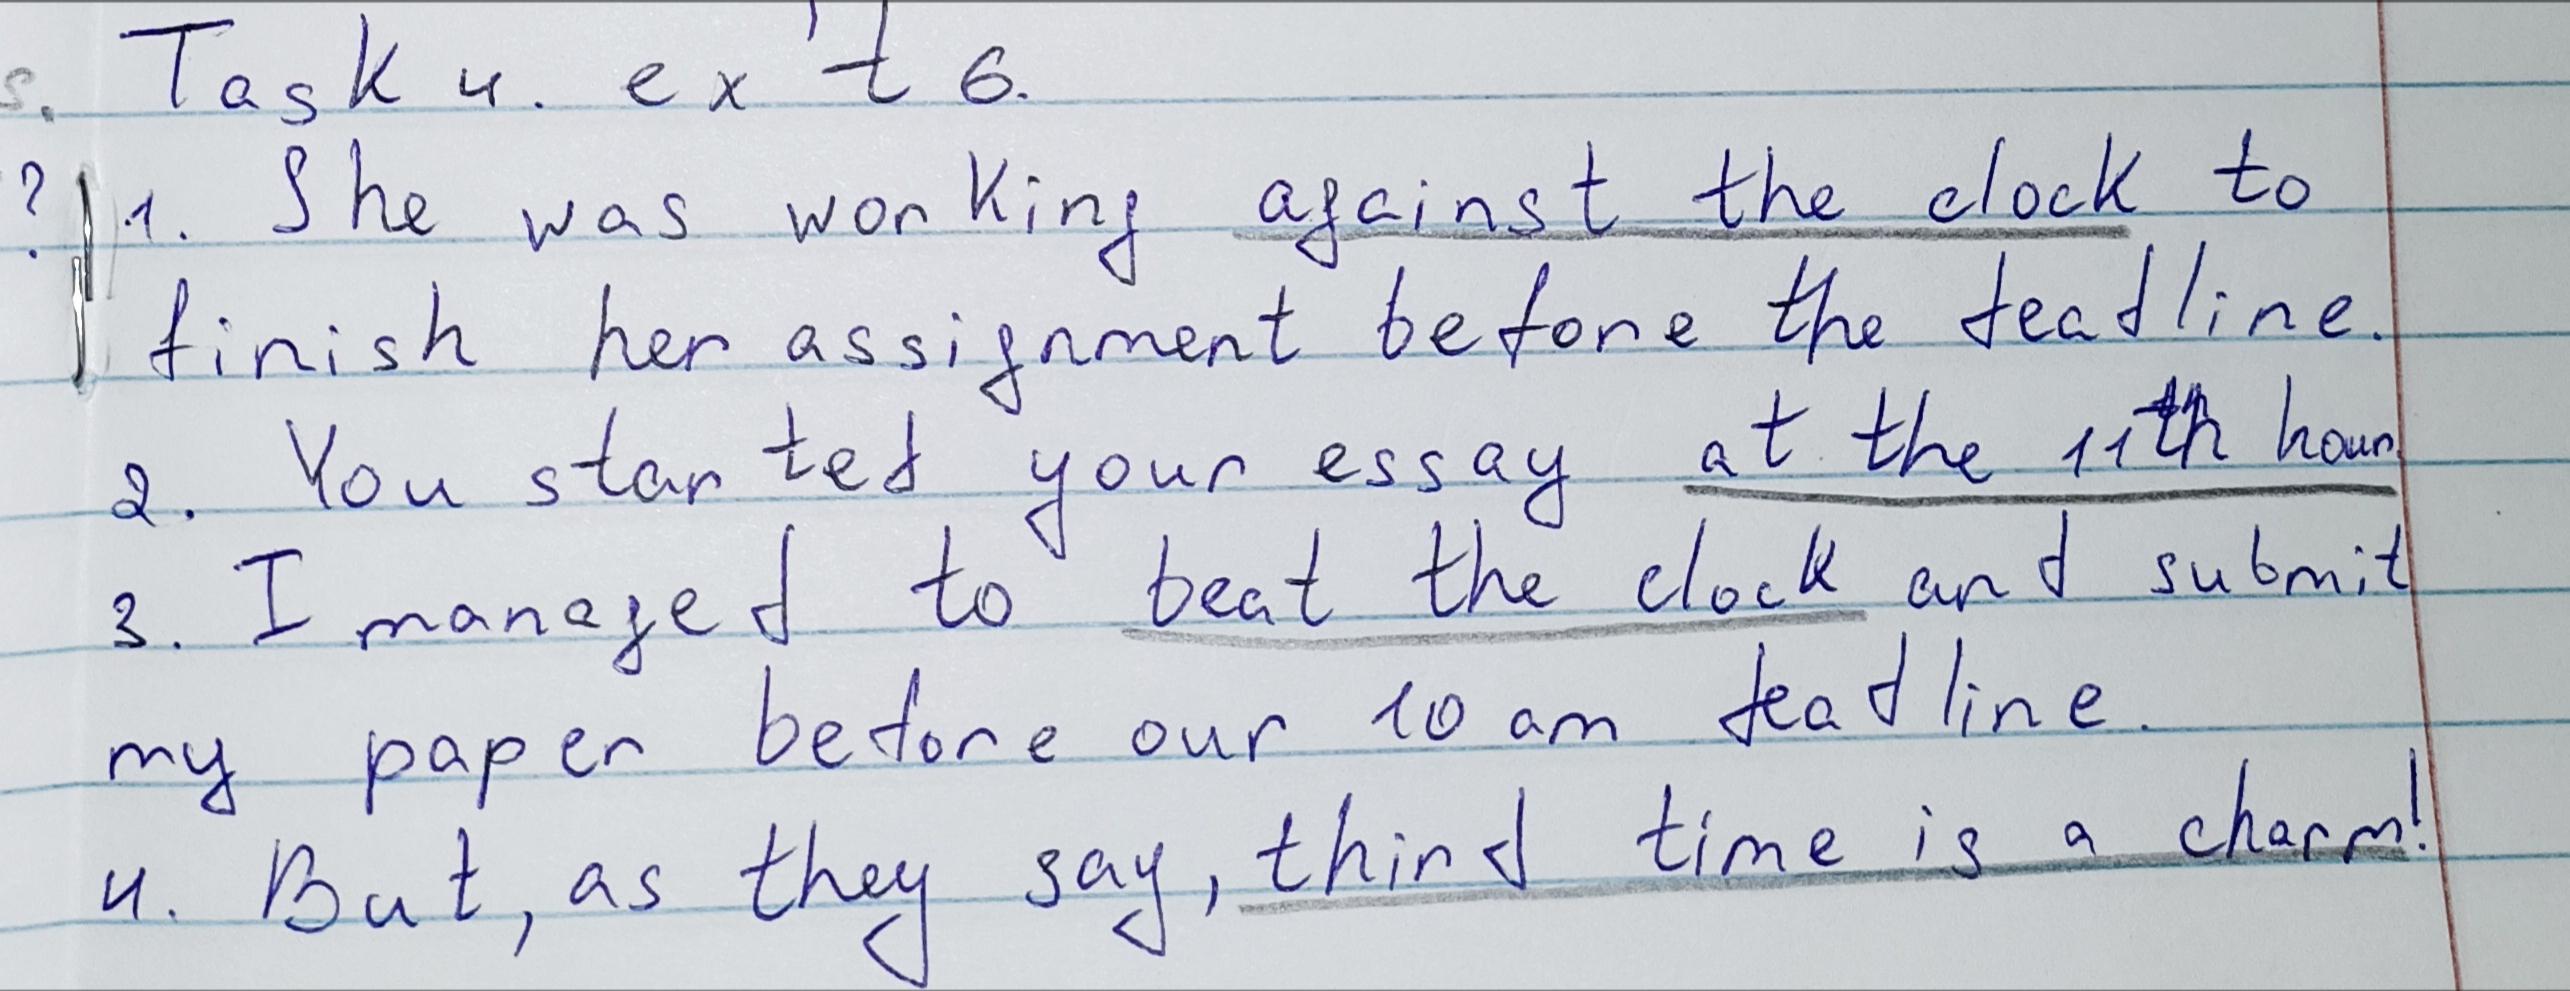 s. Task 4. ex't 6.
? 1. She was working against the clock to
finish her assignment before the deadline.
2. You started your essay at the 11th hour.
3. I managed to beat the clock and submit
my paper before our 10 am deadline.
4. But, as they say, third time is a charm!